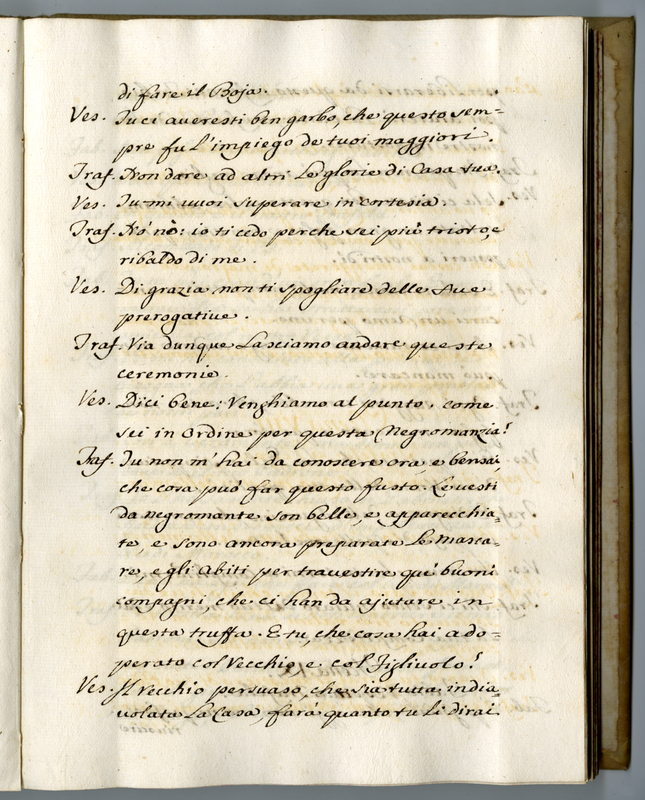 di fare il Boja.
Ves. Tu ci averesti ben garbo, che questo sem=
pre fu l'impiego de tuoi maggiori.
Traf. Non dare ad altri le glorie di Casa tua.
Ves. Tu mi vuoi superare in cortesia.
Traf. Nò nò: io ti cedo perche sei più tristo, e
ribaldo di me.
Ves. Di grazia non ti spogliare delle sue
prerogative.
Traf. Via dunque lasciamo andare queste
ceremonie.
Ves. Dici bene: Venghiamo al punto, come
sei in Ordine per questa Negromanzia?
Traf. Tu non m'hai da conoscere ora, e ben sai,
che cosa può far questo fusto. Le vesti
da negromante son belle, e apparecchia=
te, e sono ancora preparate le masca=
re, e gli Abiti per travestire què buoni
compagni, che ci han da ajutare in
questa truffa. E tu, che cosa hai ado=
perato col Vecchio e col Figliuolo?
Ves. Il Vecchio persuaso, che sia tutta india=
volata la Casa, farà quanto tu li dirai